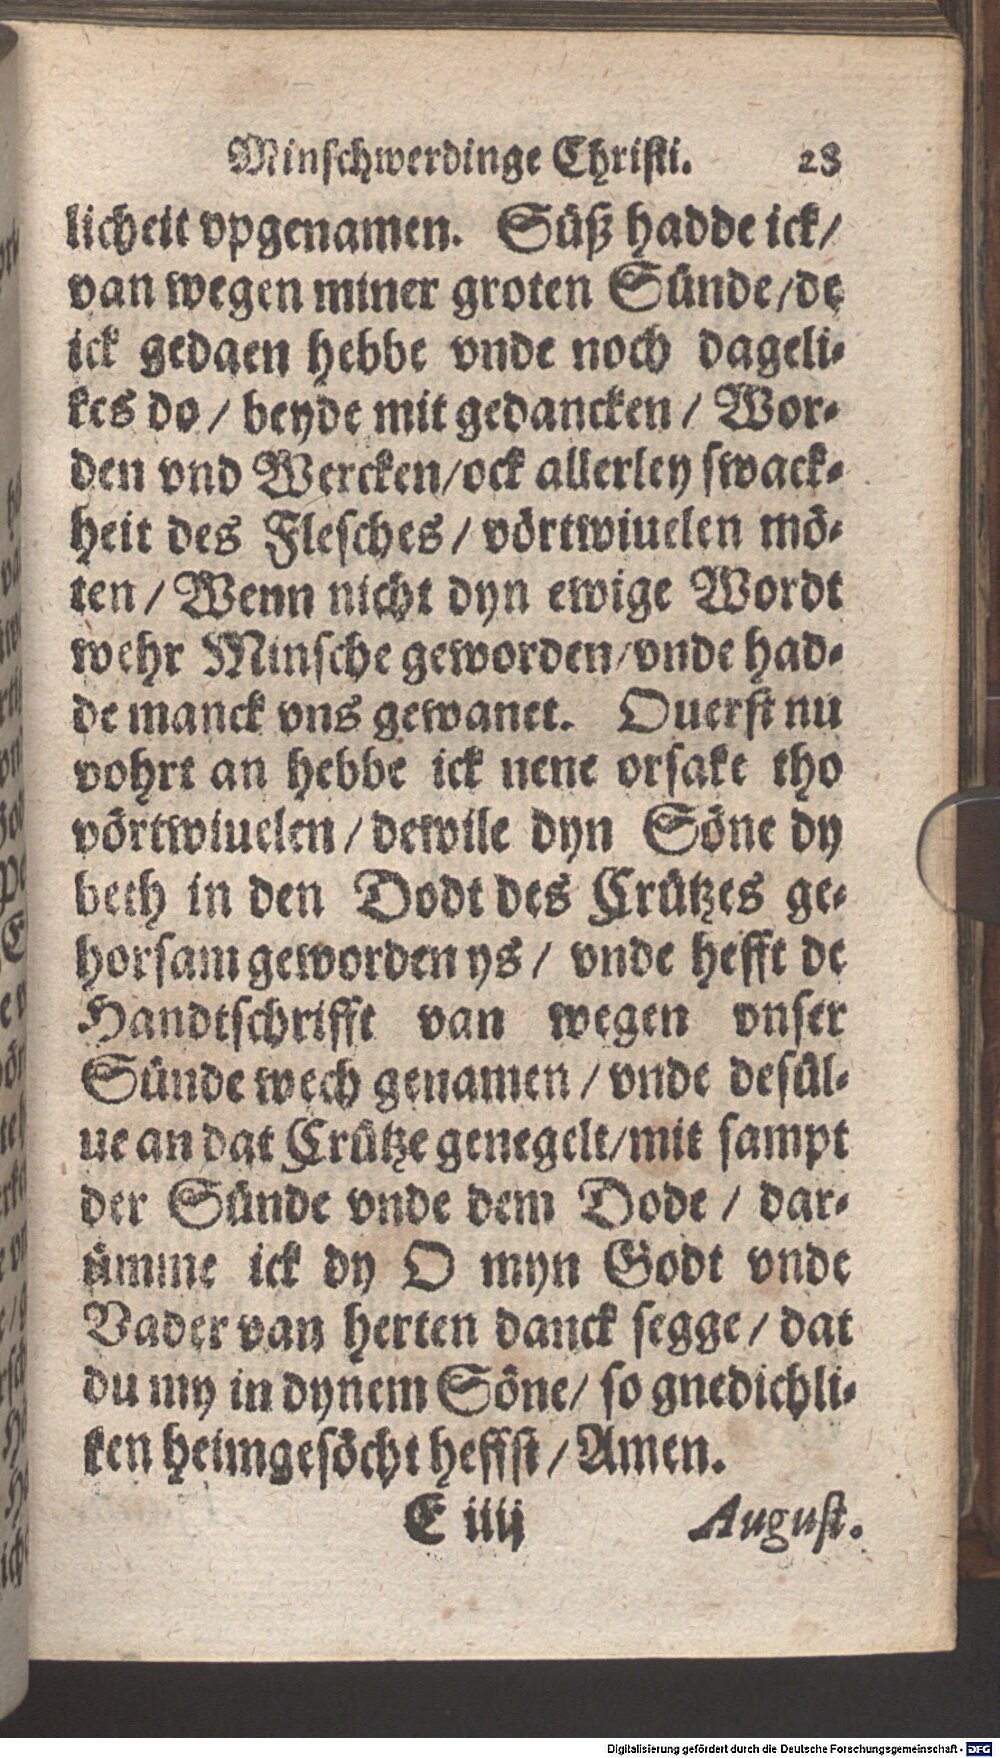 Minschwerdinge Christi. 28
licheit vpgenamen. Süß hadde ick/
van wegen miner groten Sünde/de
ick gedaen hebbe vnde noch dageli-
kes do / beyde mit gedancken / Wor-
den vnd Wercken/ock allerley swack-
heit des Flesches / vörtwiuelen mö-
ten / Wenn nicht dyn ewige Wordt
wehr Minsche geworden/vnde had-
de manck vns gewanet. Ouerst nu
vohrt an hebbe ick nene orsake tho
vörtwiuelen / dewile dyn Söne dy
beth in den Dodt des Crützes ge-
horsam geworden ys / vnde hefft de
Handtschrifft van wegen vnser
Sünde wech genamen / vnde desül-
ue an dat Crütze genegelt/mit sampt
der Sünde vnde dem Dode / dar-
ümme ick dy O myn Godt vnde
Vader van herten danck segge / dat
du my in dynem Söne/ so gnedichli-
ken heimgesöcht heffst / Amen.
E iiij August.
Digitalisierung gefördert durch die Deutsche Forschungsgemeinschaft - DFG